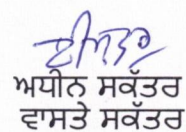 ਅਧੀਨ ਸਕੱਤਰ
ਵਾਸਤੇ ਸਕੱਤਰ